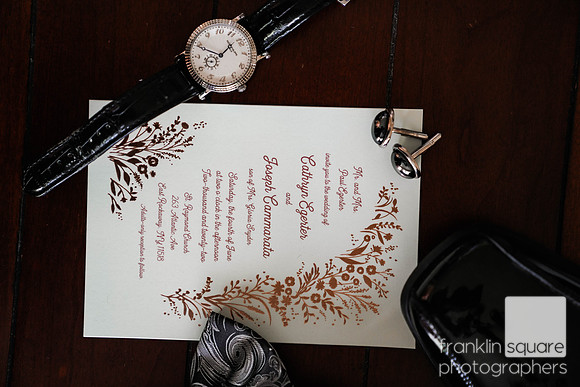 Mr. and Mrs.
Paul Egerter
invite you to the wedding of
Cathryn Egerter
and
Joseph Cammarata
son of Mrs. Gloria Snyder
Saturday, the fourth of June
at two o'clock in the afternoon
Two-thousand and twenty-two
St. Raymond Church
263 Atlantic Ave
East Rockaway, NY 11518
Adults-only reception to follow
franklin square
photographers